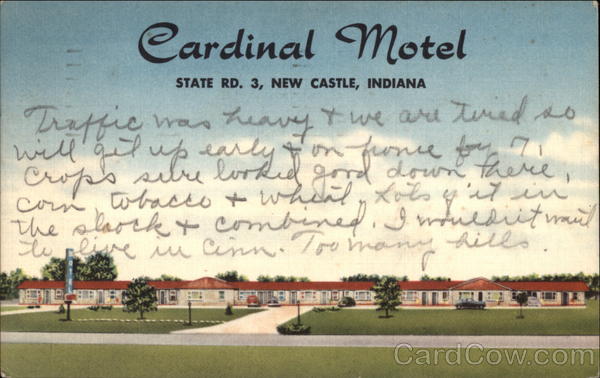 Cardinal Motel
STATE RD. 3, NEW CASTLE, INDIANA
Traffic was heavy & we are tired so
will get up early & on home by 7.
Crops sure looked good down there,
corn tobacco & wheat. Lots of it in
the shock & combined. I wouldn't want
to live in Cinn. Too many hills.
CardCow.com